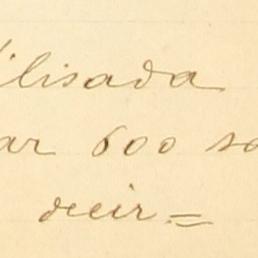 ilisada
ar 600 sa
deir=